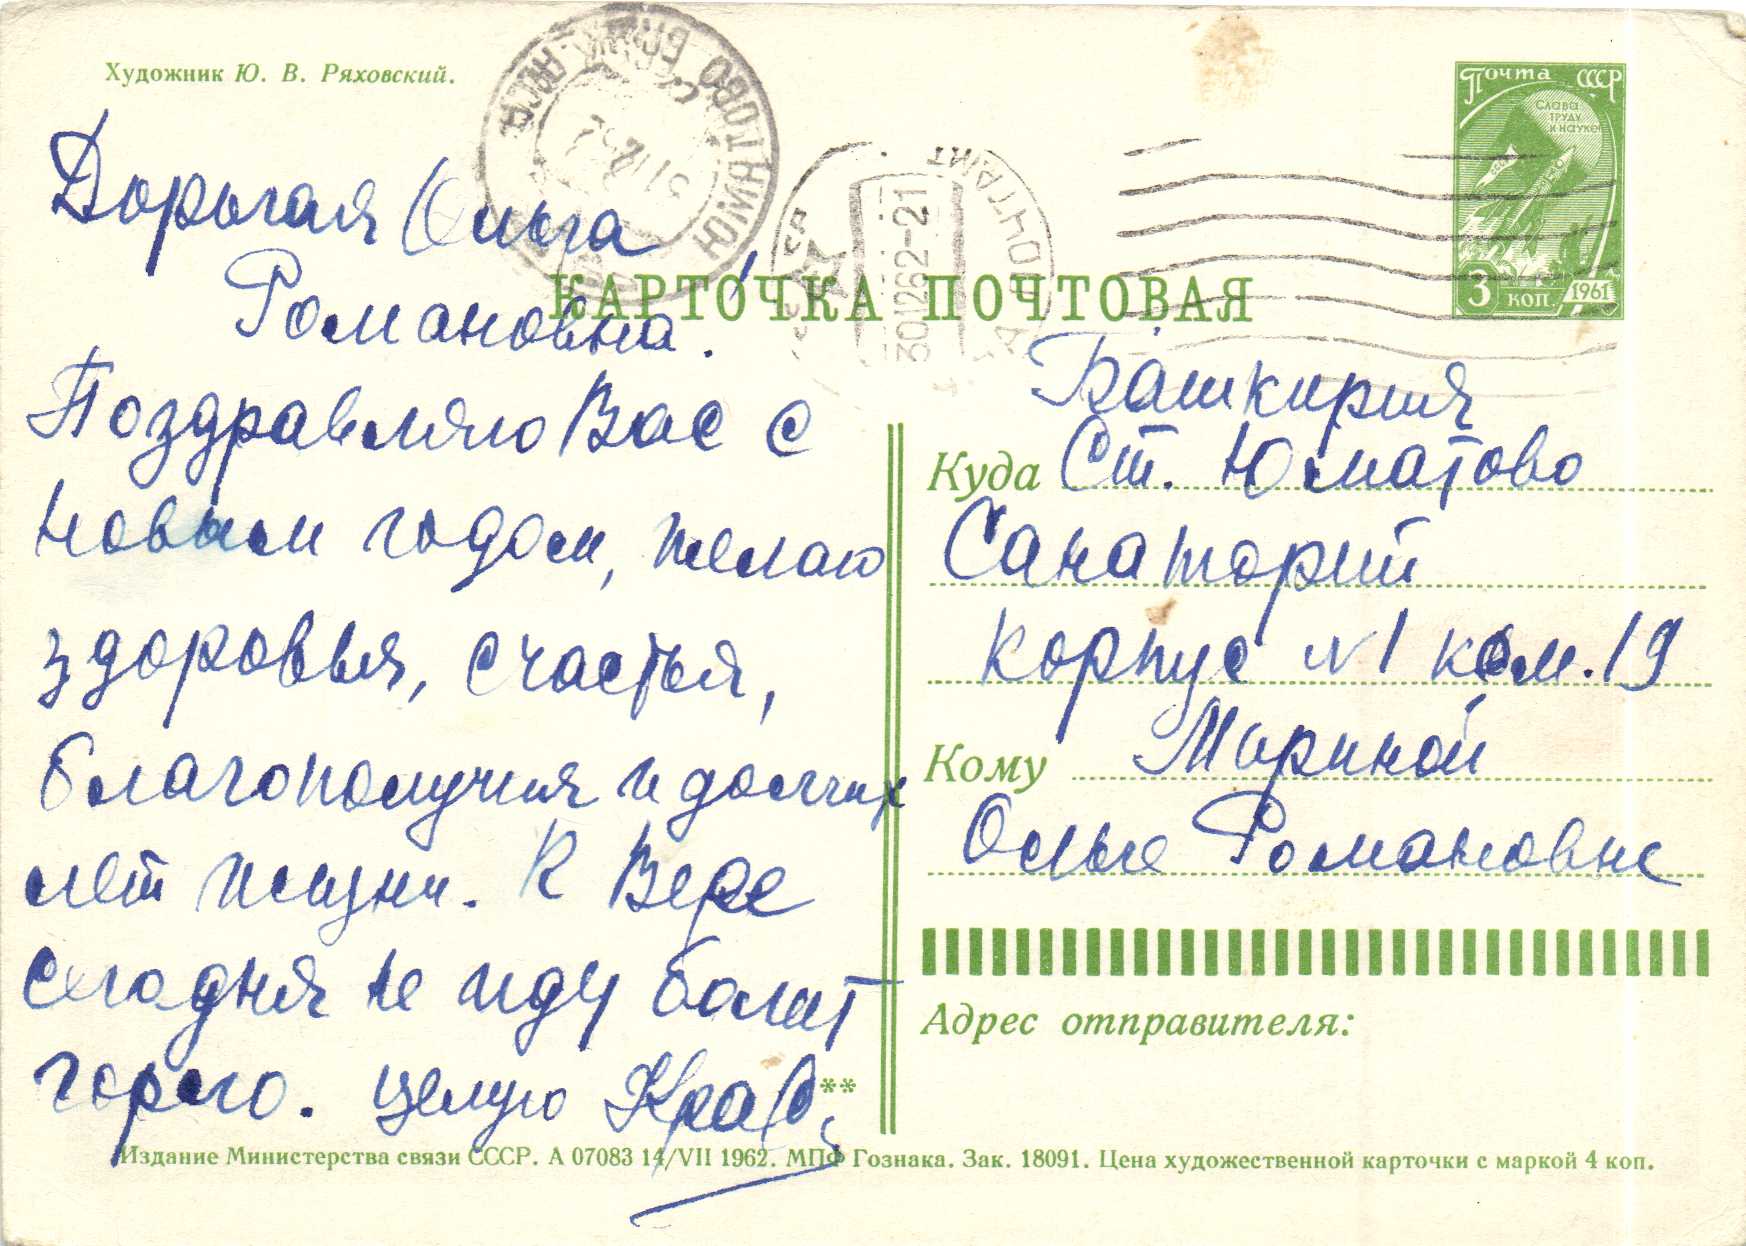 Художник Ю. В. Ряховский.
Дорогая Ольга
Романовна.
Поздравляю Вас с
новым годом, желаю
здоровья, счастья,
благополучия и долгих
лет жизни. К Вере
сегодня не иду болит
горло. Целую
Почта СССР
Слава
труду
и науке!
3 коп. 1961
ЮМАТОВО БАШК. АССР
ПОЧТАМТ
301262-21
КАРТОЧКА ПОЧТОВАЯ
Башкирия
Куда Ст. Юматово
Санаторий
корпус N1 ком. 19
Кому Мариной
Ольге Романовне
Адрес отправителя:
**
Издание Министерства связи СССР. А 07083 14/VII 1962. МПФ Гознака. Зак. 18091. Цена художественной карточки с маркой 4 коп.